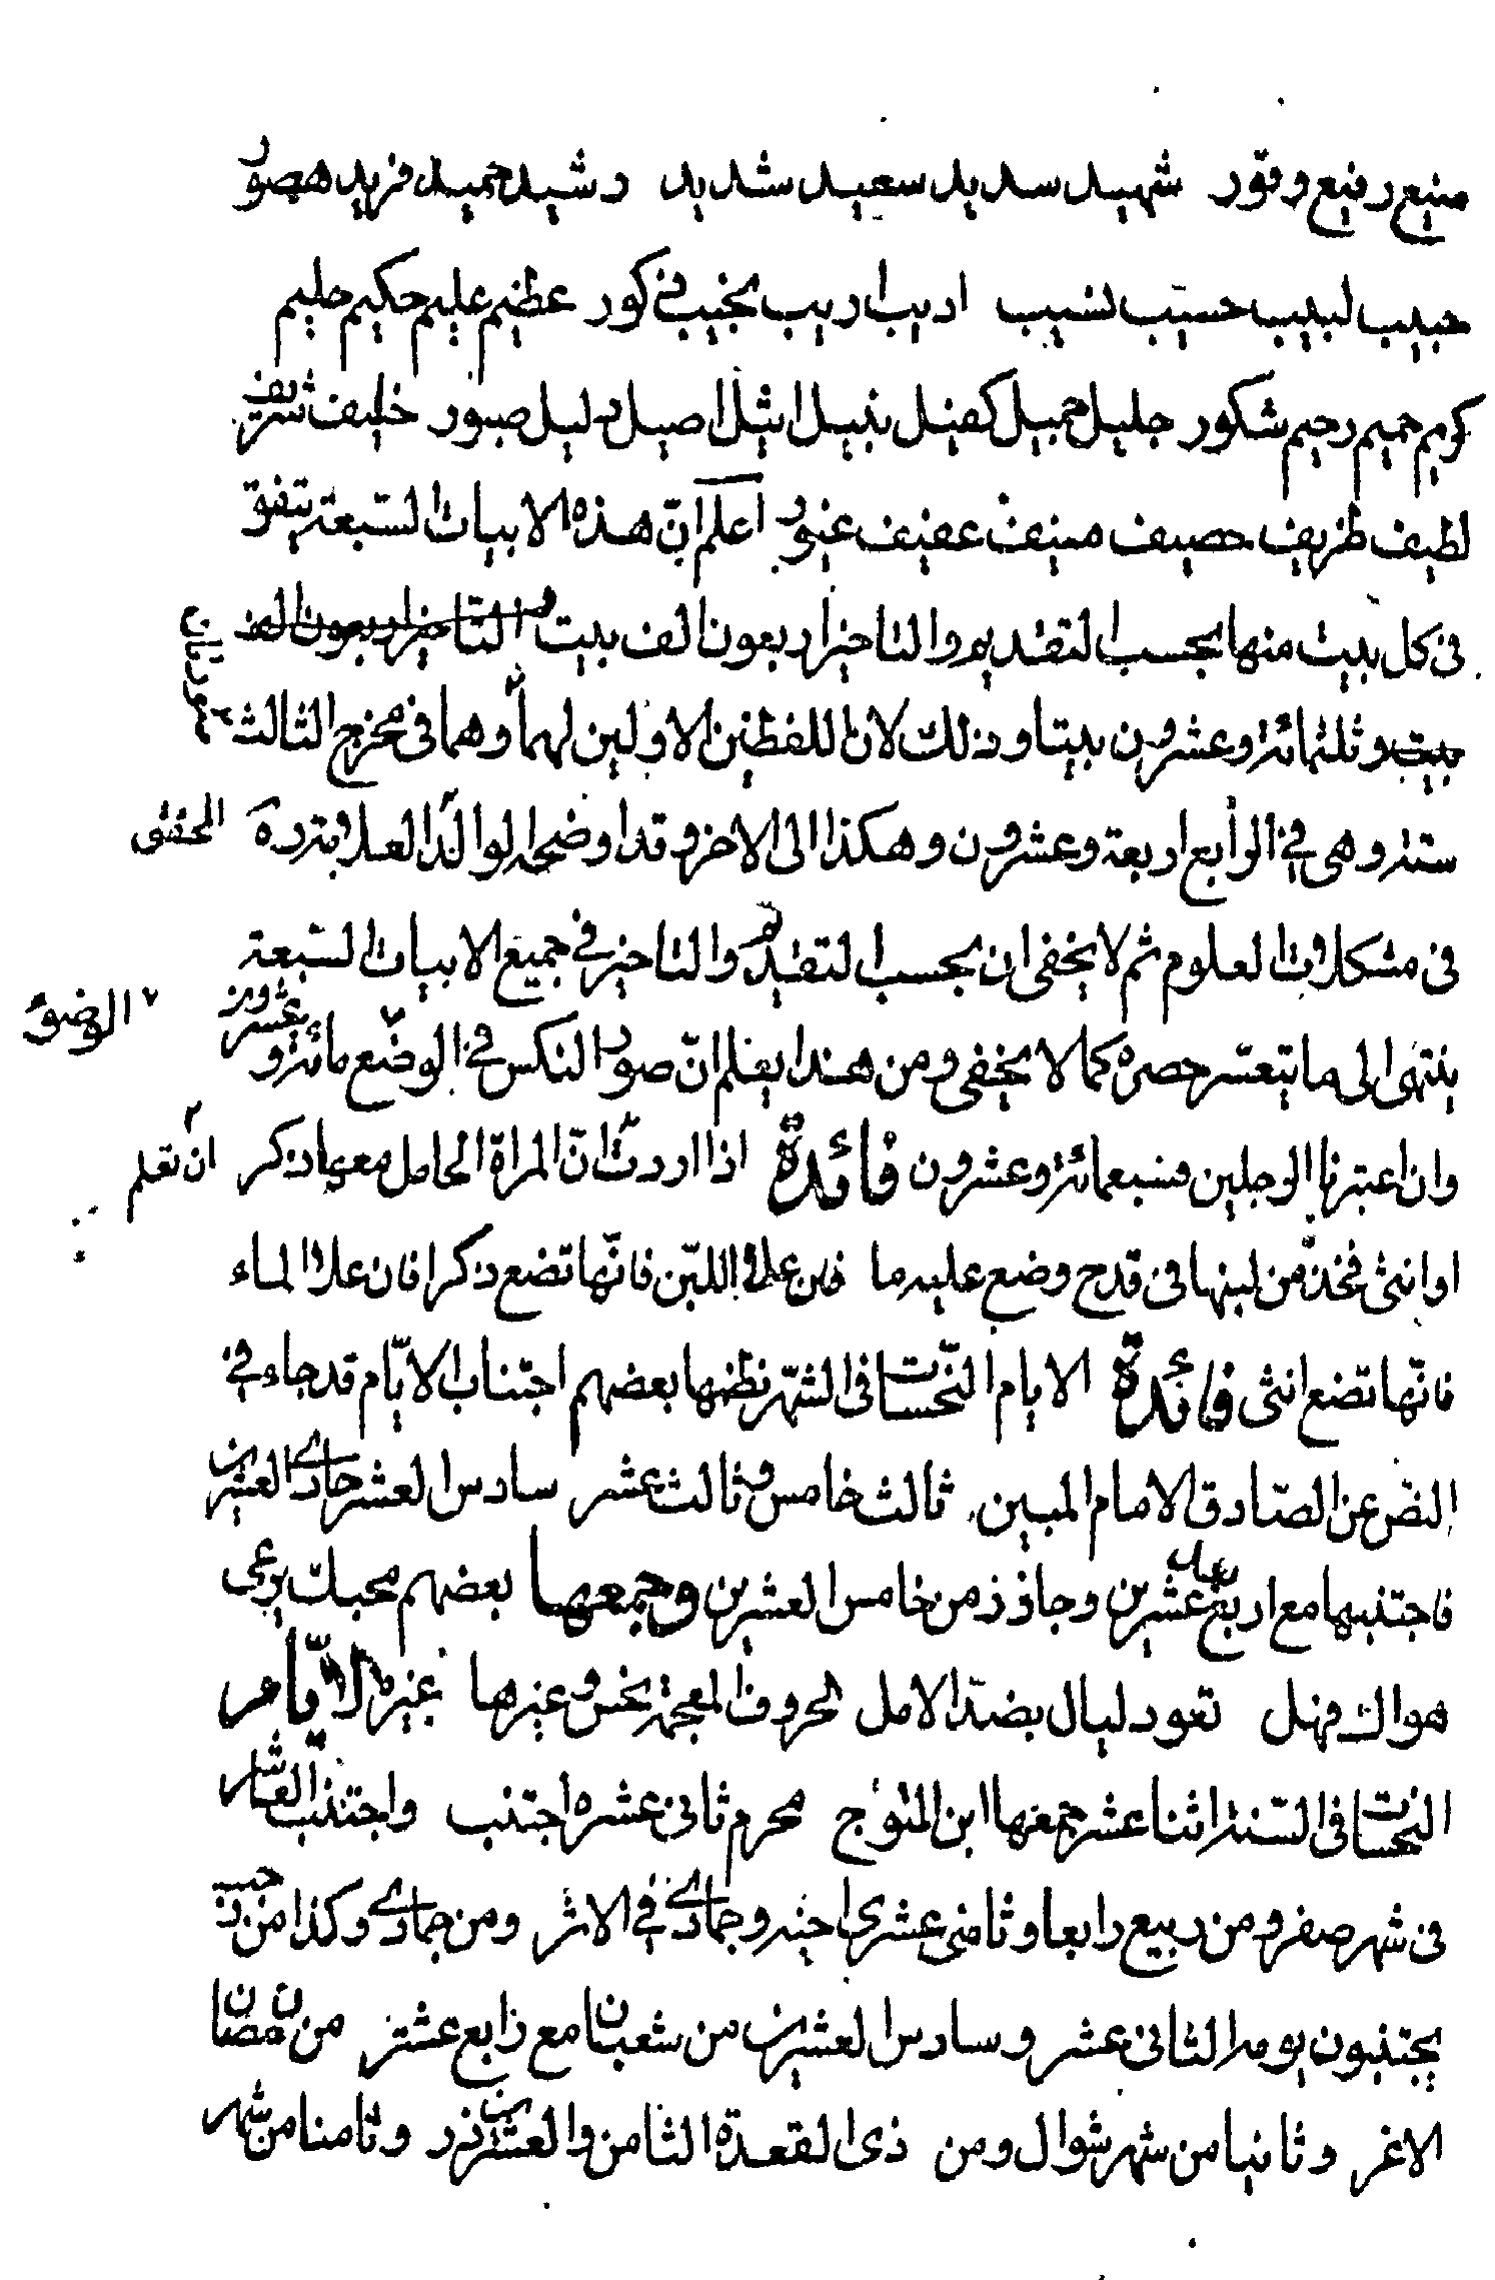 منيع رفيع وقور شهيد سديد سعيد شديد رشيد حميد فريد هصور
حبيب لبيب حسيب نسيب اديب اريب نجيب ذكور عظيم عليم حكيم حليم
كريم حميم رحيم شكور جليل جميل كفيل نبيل اثيل اصيل دليل صبور خليف شريف
لطيف ظريف حصيف منيف عفيف غيور اعلم انّ هذه الابيات السّبعة يتفق
في كل بيت منها بحسب التقديم والتاخير اربعون الف بيت و التاخير اربعون الف
بيت وثلثمائة وعشرون بيتا وذلك لان اللفظين الاولين لهما وهما في مخرج الثالث
صورتان
ستة وهي في الرابع اربعة وعشرون وهكذا الى الاخر وقد اوضحه الوالد العلامة ره المحقق
في مشكلات العلوم ثم لا يخفى ان بحسب التقديم والتاخير في جميع الابيات السّبعة
ينتهى الى ما يتعسّر حصره كما لا يخفى ومن هذا يعلم انّ صور النكس في الوضع مائة وعشرون
الوضوء
وان اعتبرنا الرجلين فسبعمائة وعشرون فائدة اذا اردت انّ المراة الحامل معها ذكر ان تعلم
او انثى فخذ من لبنها في قدح وضع عليه ما فان علا اللبن فانّها تضع ذكرا فان علا الماء
فانّها تضع انثى فائدة الايام النّحسات في الشهر نظمها بعضهم اجتناب الايّام قد جاء في
النصّ عن الصّادق الامام المبين ثالث خامس وثالث عشر سادس العشر حادي العشرين
فاجتنبها مع اربع عشرين وحاذر من خامس العشرين وجمعها بعضهم محبك يرعى
هواك فهل تعود ليال بضدّ الامل الحروف المعجمة نحس وغيرها غيره الايّام
النحسات في السّنة اثنا عشر جمعها ابن المتوّج محرم ثاني عشره اجتنب واجتنب العاشر
في شهر صفر ومن ربيع رابعا وثامني عشرى اخيه وجمادى في الاثر ومن جمادى وكذا من
يجتنبون يومه الثاني عشر وسادس العشرين من شعبان مع رابع عشر من رمضان
الاغر وثانيا من شهر شوال ومن ذى القعدة الثامن والعشرين ذر وثامنا من شهر